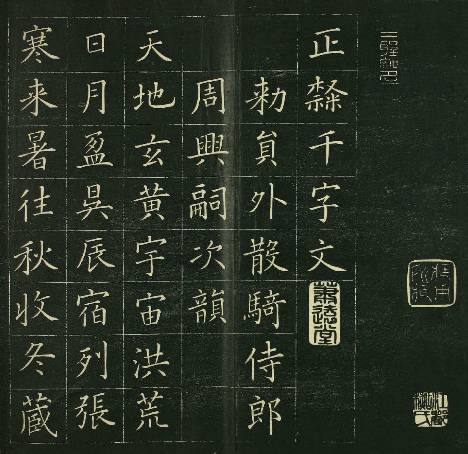 正隸千字文
勑員外散騎侍郎
周興嗣次韻
天地玄黃宇宙洪荒
日月盈昃辰宿列張
寒来暑往秋收冬蔵